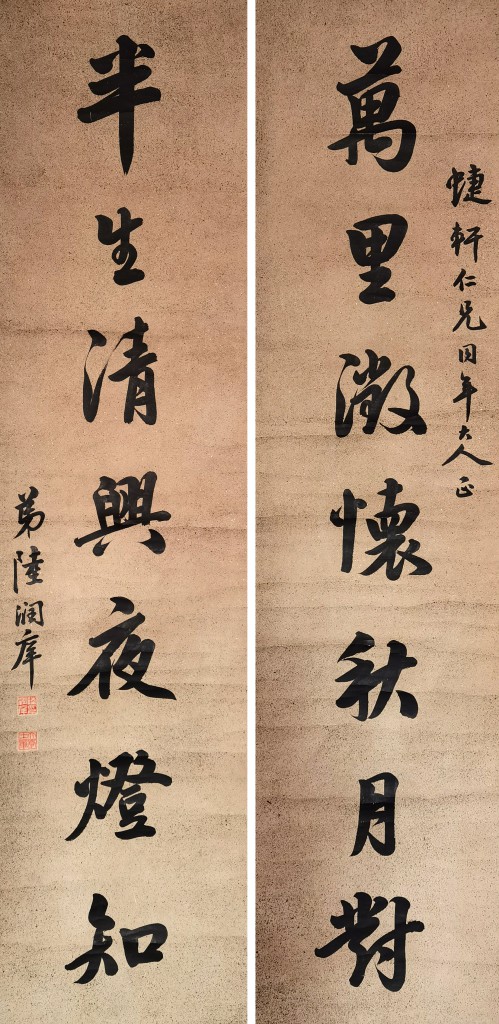 蜨軒仁兄同年大人正
萬里澂懷秋月對
半生清興夜燈知
弟陸潤庠